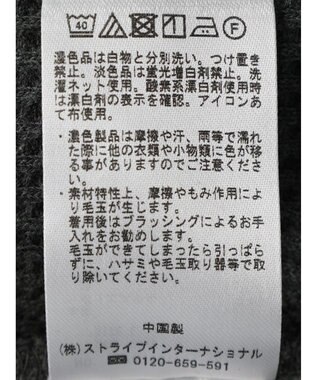 40 F
濃色品は白物と分別洗い。つけ置き
禁止。淡色品は蛍光増白剤禁止。洗
濯ネット使用。酸素系漂白剤使用時
は漂白剤の表示を確認。アイロンあ
て布使用。
・濃色製品は摩擦や汗、雨等で濡れ
た際に他の衣類や小物類に色が移
る事がありますのでご注意くださ
い。
・素材特性上、摩擦やもみ作用によ
り毛玉が生じます。
着用後はブラッシングによるお手
入れをお勧めします。
毛玉ができてしまったら引っぱら
ずに、ハサミや毛玉取り器等で取
り除いてください。
中国製
(株)ストライプインターナショナル
0120-659-591